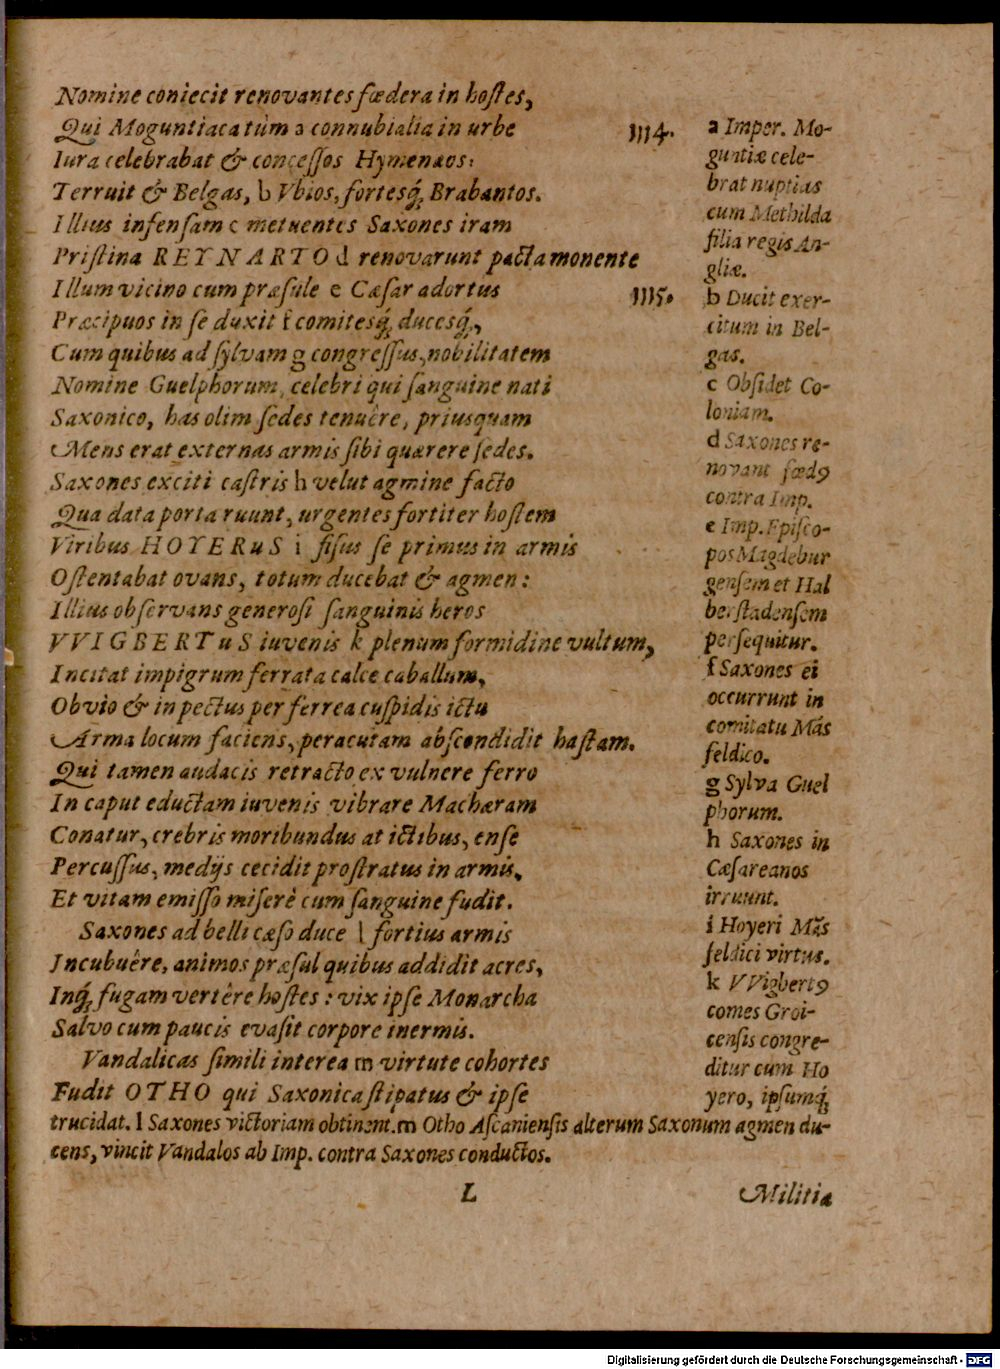 Nomine coniecit renovantes fœdera in hoſtes,
Qui Moguntiaca tùm a connubialia in urbe
Iura celebrabat & conceſſos Hymenæos:
Terruit & Belgas, b Vbios, forteſq́; Brabantos.
Illius infenſam c metuentes Saxones iram
Priſtina REYNARTO d renovarunt pacta monente
Illum vicino cum præſule e Cæſar adortus
Præcipuos in ſe duxit f comiteſq́; duceſq́;,
Cum quibus ad ſylvam g congreſſus, nobilitatem
Nomine Guelphorum, celebri qui ſanguine nati
Saxonico, has olim ſedes tenuêre, priusquam
Mens erat externas armis ſibi quærere ſedes.
Saxones exciti caſtris h velut agmine facto
Qua data porta ruunt, urgentes fortiter hoſtem
Viribus HOYERuS i fiſus ſe primus in armis
Oſtentabat ovans, totum ducebat & agmen:
Illius obſervans generoſi ſanguinis heros
VVIGBERTuS iuvenis k plenum formidine vultum,
Incitat impigrum ferrata calce caballum,
Obvio & in pectus per ferrea cuſpidis ictu
Arma locum faciens, peracutam abſcondidit haſtam.
Qui tamen audacis retracto ex vulnere ferro
In caput eductam iuvenis vibrare Machæram
Conatur, crebris moribundus at ictibus, enſe
Percuſſus, medijs cecidit proſtratus in armis,
Et vitam emiſſo miſerè cum ſanguine fudit.
Saxones ad belli cæſo duce l fortius armis
Incubuêre, animos præſul quibus addidit acres,
Inq́; fugam vertêre hoſtes: vix ipſe Monarcha
Salvo cum paucis evaſit corpore inermis.
Vandalicas ſimili interea m virtute cohortes
Fudit OTHO qui Saxonica ſtipatus & ipſe
1114.
1115.
a Imper. Mo-
guntiæ cele-
brat nuptias
cum Methilda
filia regis An-
gliæ.
b Ducit exer-
citum in Bel-
gas.
c Obſidet Co-
loniam.
d Saxones re-
novant fœdꝰ
contra Imp.
e Imp. Epiſco-
pos Magdebur
genſem et Hal
berſtadenſem
perſequitur.
f Saxones ei
occurrunt in
comitatu Mãs
feldico.
g Sylva Guel
phorum.
h Saxones in
Cæſareanos
irruunt.
i Hoyeri Mãs
feldici virtus.
k VVigbertꝰ
comes Groi-
cenſis congre-
ditur cum Ho
yero, ipſumq́;
trucidat. l Saxones victoriam obtinent. m Otho Aſcanienſis alterum Saxonum agmen du-
cens, vincit Vandalos ab Imp. contra Saxones conductos.
L
Militia
Digitalisierung gefördert durch die Deutsche Forschungsgemeinschaft - DFG